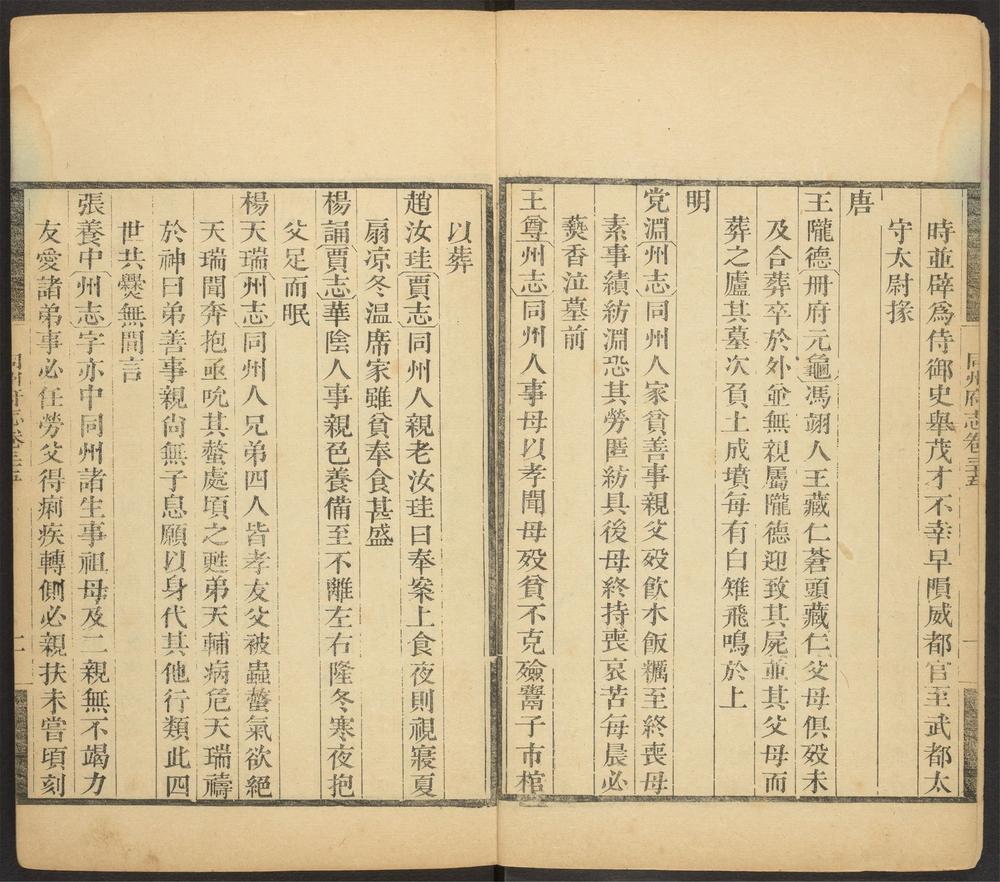 時並辟爲侍御史舉茂才不幸早隕威都官至武都太
守太尉掾
唐
王隴德册府元龜馮翊人王藏仁蒼頭藏仁父母俱歿未
及合葬卒於外並無親屬隴德迎致其屍並其父母而
葬之廬其墓次負土成墳每有白雉飛鳴於上
明
党淵州志同州人家貧善事親父歿飮水飯糲至終喪母
素事績紡淵恐其勞匿紡具後母終持喪哀苦每晨必
爇香泣墓前
王尊州志同州人事母以孝聞母歿貧不克殮鬻子市棺
以葬
趙汝珪賈志同州人親老汝珪日奉案上食夜則視寢夏
扇凉冬温席家雖貧奉食甚盛
楊誦賈志華陰人事親色養備至不離左右隆冬寒夜抱
父足而眠
楊天瑞州志同州人兄弟四人皆孝友父被蟲螫氣欲絕
天瑞聞奔抱亟吮其螫處頃之甦弟天輔病危天瑞禱
於神曰弟善事親尙無子息願以身代其他行類此四
世共爨無間言
張養中州志字亦中同州諸生事祖母及二親無不竭力
友愛諸弟事必任勞父得痢疾轉側必親扶未嘗頃刻
同州府志卷三五